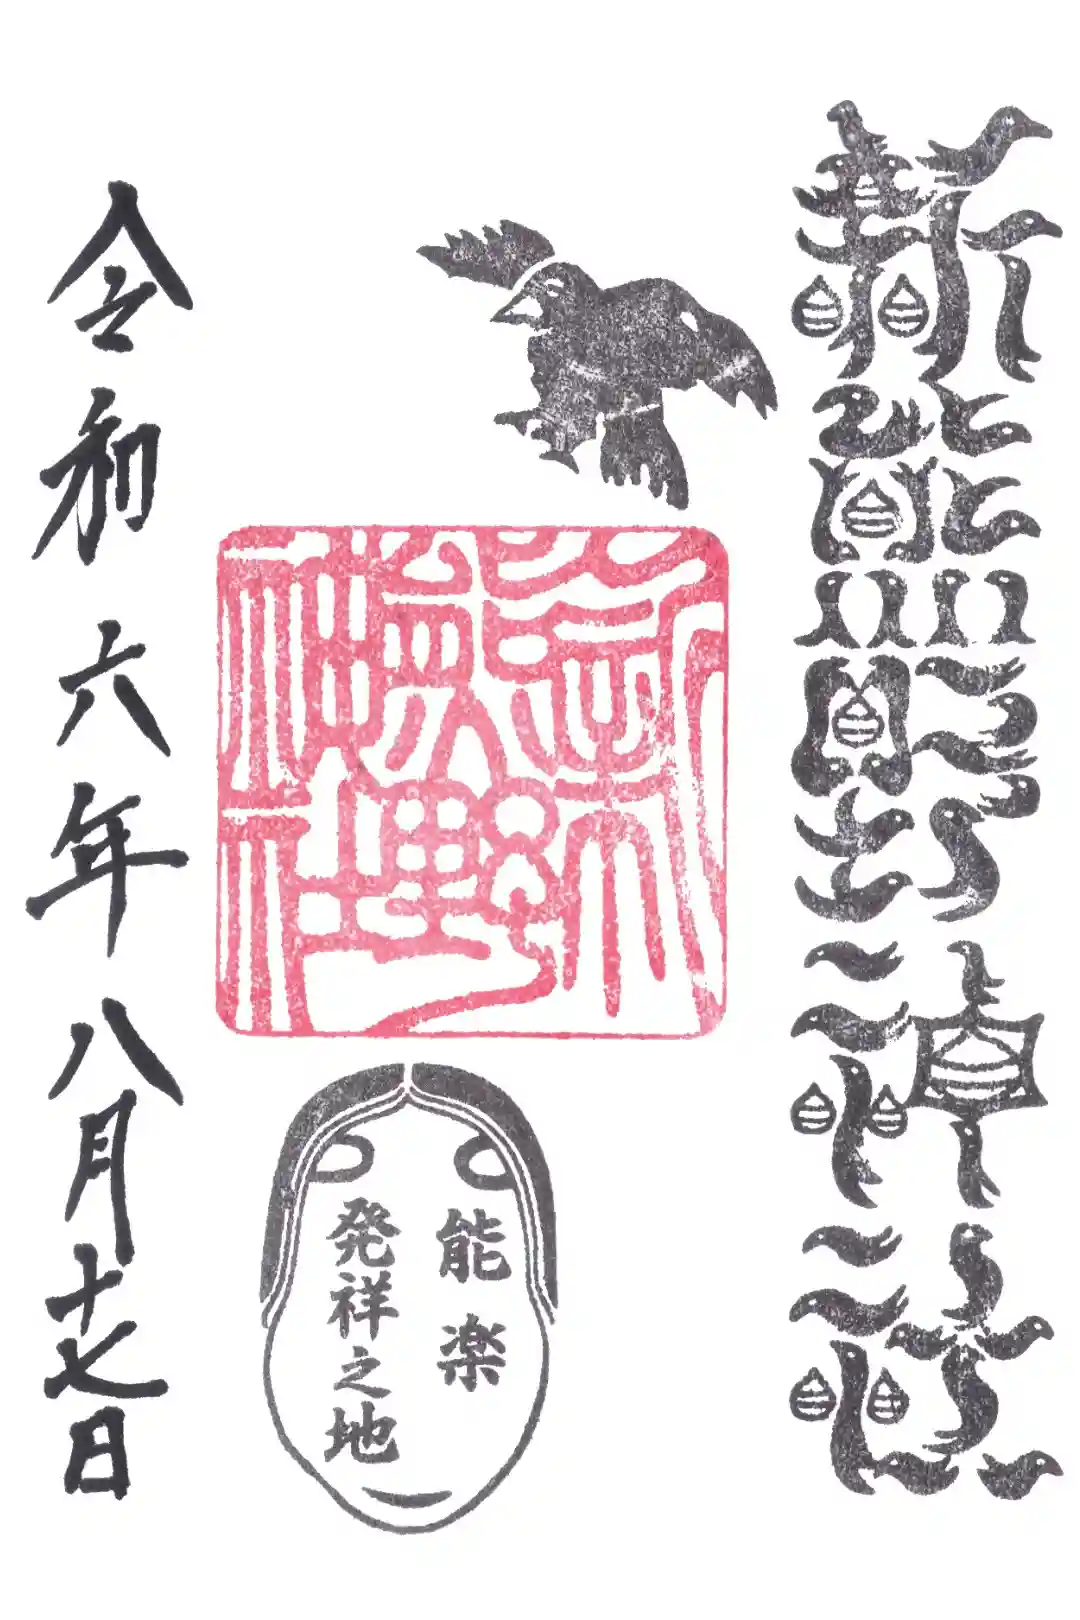 新熊野神社
新
熊野
神社
能楽
発祥之地
令和六年八月十七日